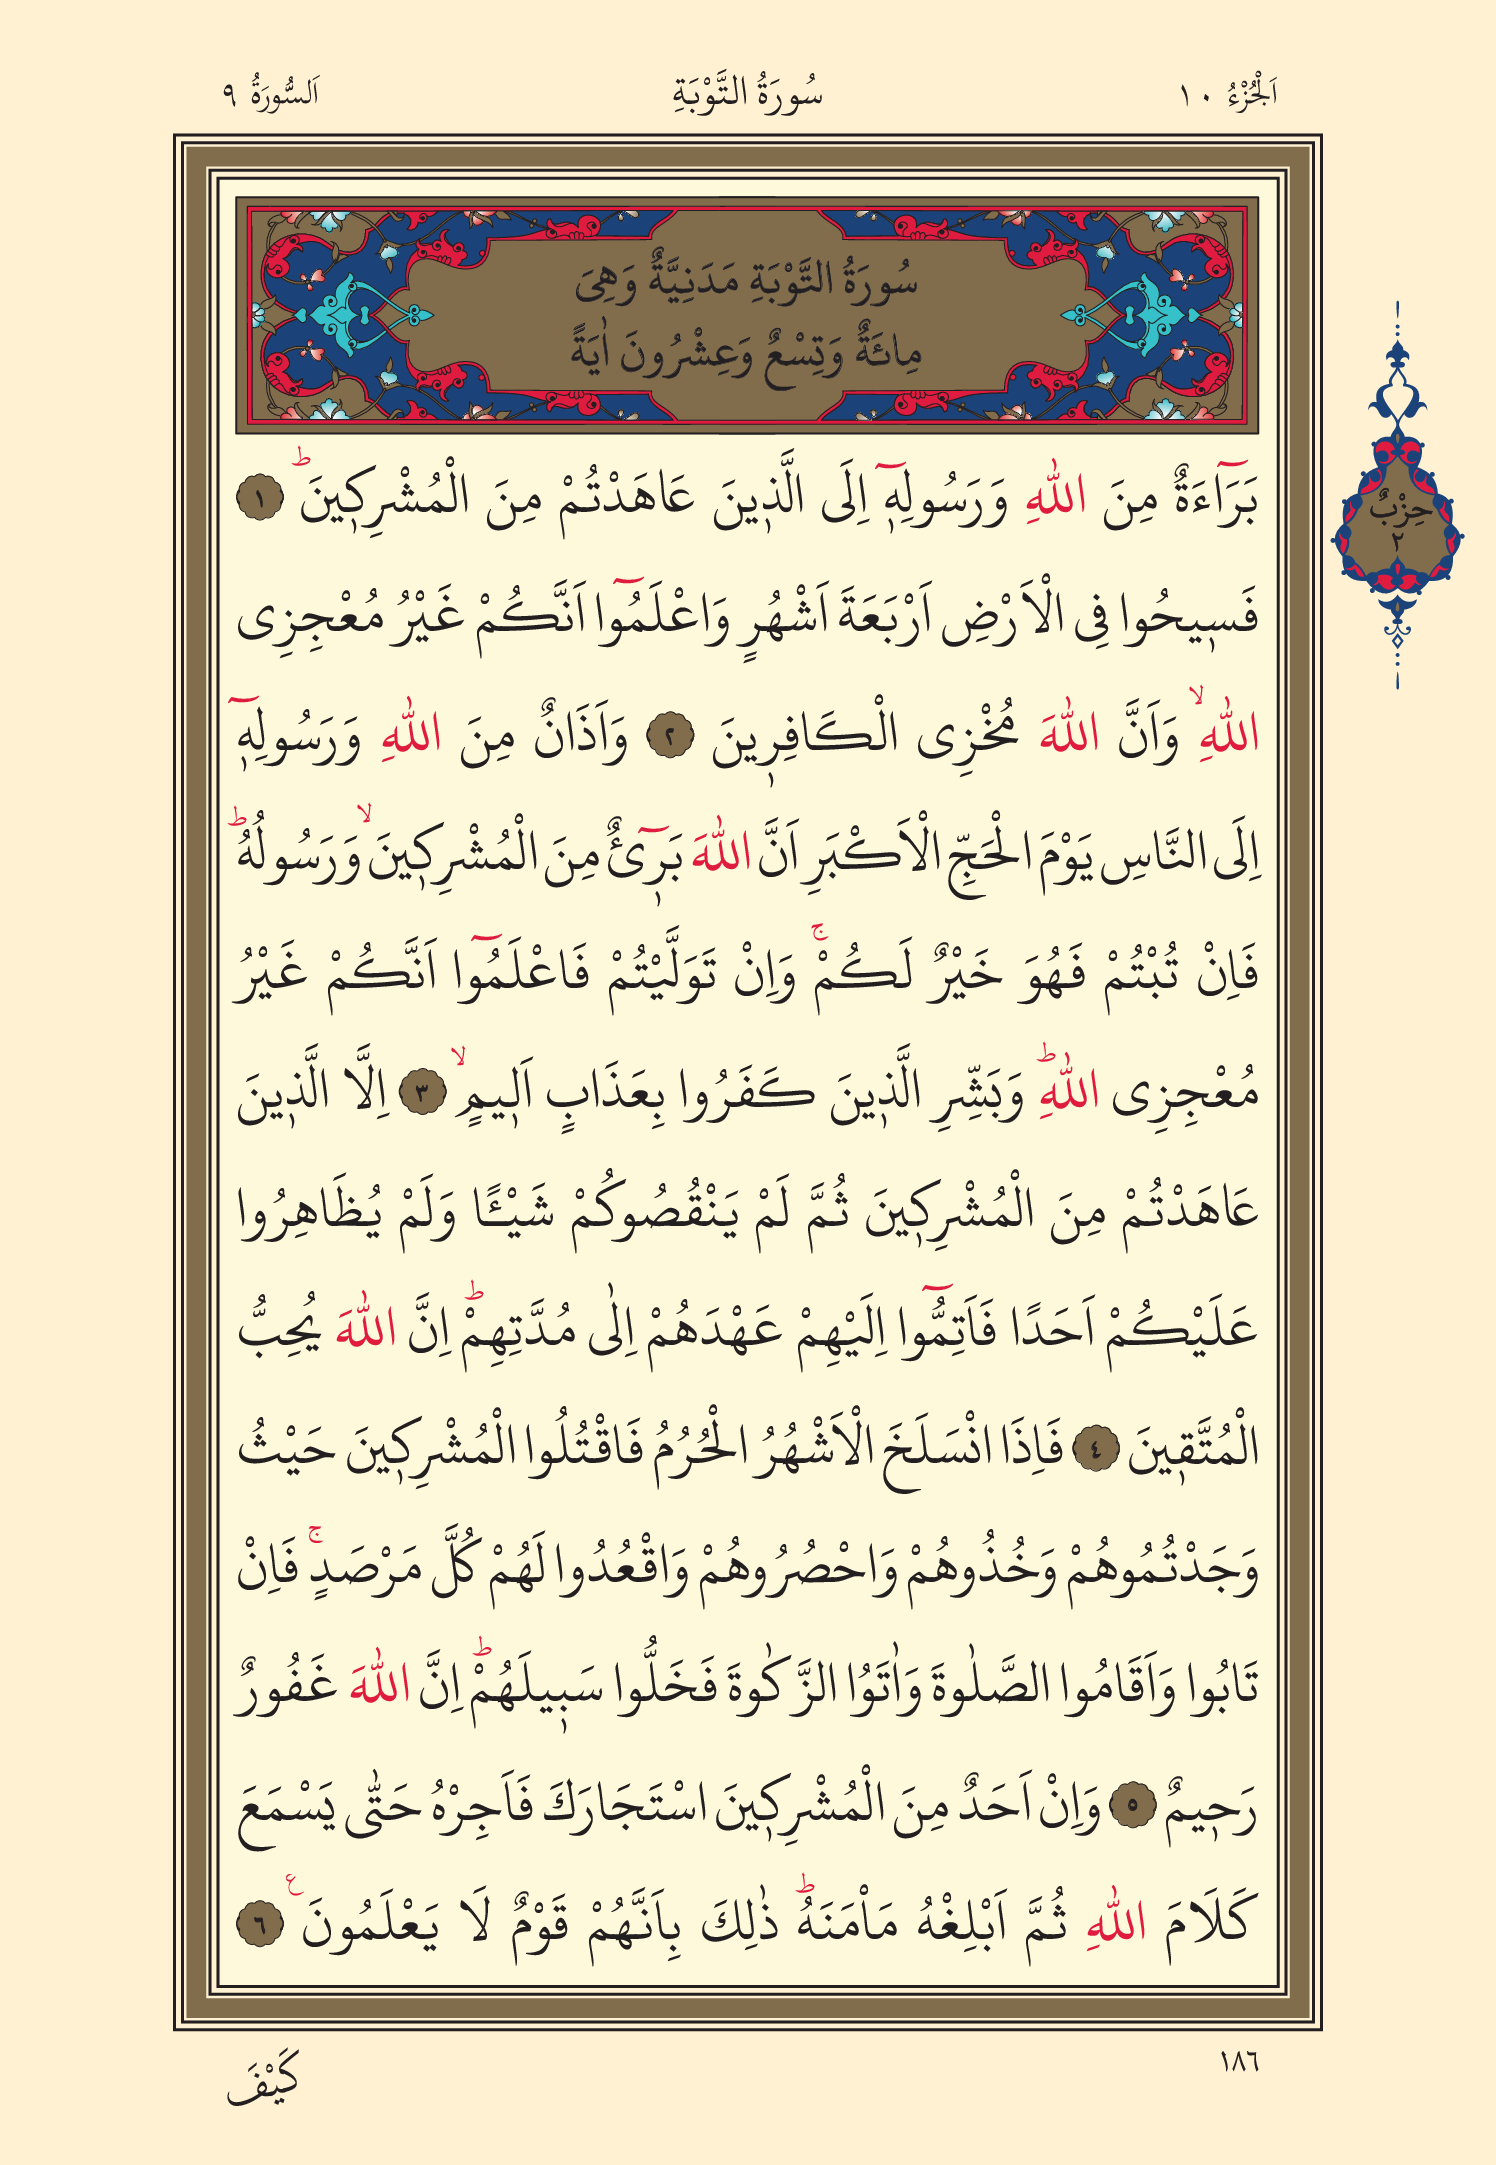 اَلْجُزْءُ ١٠
سُورَةُ التَّوْبَةِ
اَلسُّورَةُ ٩
سُورَةُ التَّوْبَةِ مَدَنِيَّةٌ وَهِىَ
مِائَةٌ وَتِسْعٌ وَعِشْرُونَ اٰيَةً
حِزْبٌ
٢
بَرَٓاءَةٌ مِنَ اللّٰهِ وَرَسُولِهٖٓ اِلَى الَّذٖينَ عَاهَدْتُمْ مِنَ الْمُشْرِكٖينَؕ ١
فَسٖيحُوا فِى الْاَرْضِ اَرْبَعَةَ اَشْهُرٍ وَاعْلَمُٓوا اَنَّكُمْ غَيْرُ مُعْجِزِى
اللّٰهِۙ وَاَنَّ اللّٰهَ مُخْزِى الْكَافِرٖينَ ٢ وَاَذَانٌ مِنَ اللّٰهِ وَرَسُولِهٖٓ
اِلَى النَّاسِ يَوْمَ الْحَجِّ الْاَكْبَرِ اَنَّ اللّٰهَ بَرٖٓئٌ مِنَ الْمُشْرِكٖينَۙ وَرَسُولُهُؕ
فَاِنْ تُبْتُمْ فَهُوَ خَيْرٌ لَكُمْۚ وَاِنْ تَوَلَّيْتُمْ فَاعْلَمُٓوا اَنَّكُمْ غَيْرُ
مُعْجِزِى اللّٰهِؕ وَبَشِّرِ الَّذٖينَ كَفَرُوا بِعَذَابٍ اَلٖيمٍۙ ٣ اِلَّا الَّذٖينَ
عَاهَدْتُمْ مِنَ الْمُشْرِكٖينَ ثُمَّ لَمْ يَنْقُصُوكُمْ شَيْـًٔا وَلَمْ يُظَاهِرُوا
عَلَيْكُمْ اَحَدًا فَاَتِمُّٓوا اِلَيْهِمْ عَهْدَهُمْ اِلٰى مُدَّتِهِمْؕ اِنَّ اللّٰهَ يُحِبُّ
الْمُتَّقٖينَ ٤ فَاِذَا انْسَلَخَ الْاَشْهُرُ الْحُرُمُ فَاقْتُلُوا الْمُشْرِكٖينَ حَيْثُ
وَجَدْتُمُوهُمْ وَخُذُوهُمْ وَاحْصُرُوهُمْ وَاقْعُدُوا لَهُمْ كُلَّ مَرْصَدٍۚ فَاِنْ
تَابُوا وَاَقَامُوا الصَّلٰوةَ وَاٰتَوُا الزَّكٰوةَ فَخَلُّوا سَبٖيلَهُمْؕ اِنَّ اللّٰهَ غَفُورٌ
رَحٖيمٌ ٥ وَاِنْ اَحَدٌ مِنَ الْمُشْرِكٖينَ اسْتَجَارَكَ فَاَجِرْهُ حَتّٰى يَسْمَعَ
كَلَامَ اللّٰهِ ثُمَّ اَبْلِغْهُ مَاْمَنَهُؕ ذٰلِكَ بِاَنَّهُمْ قَوْمٌ لَا يَعْلَمُونَ ع ٦
١٨٦
كَيْفَ